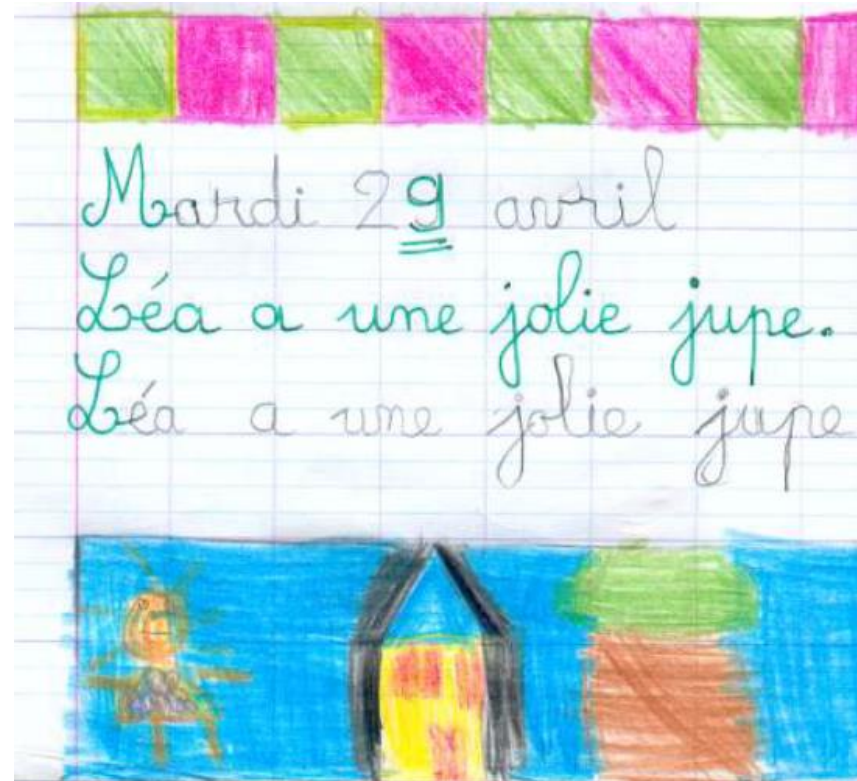 Mardi 29 avril
Léa a une jolie jupe.
Léa a une jolie jupe